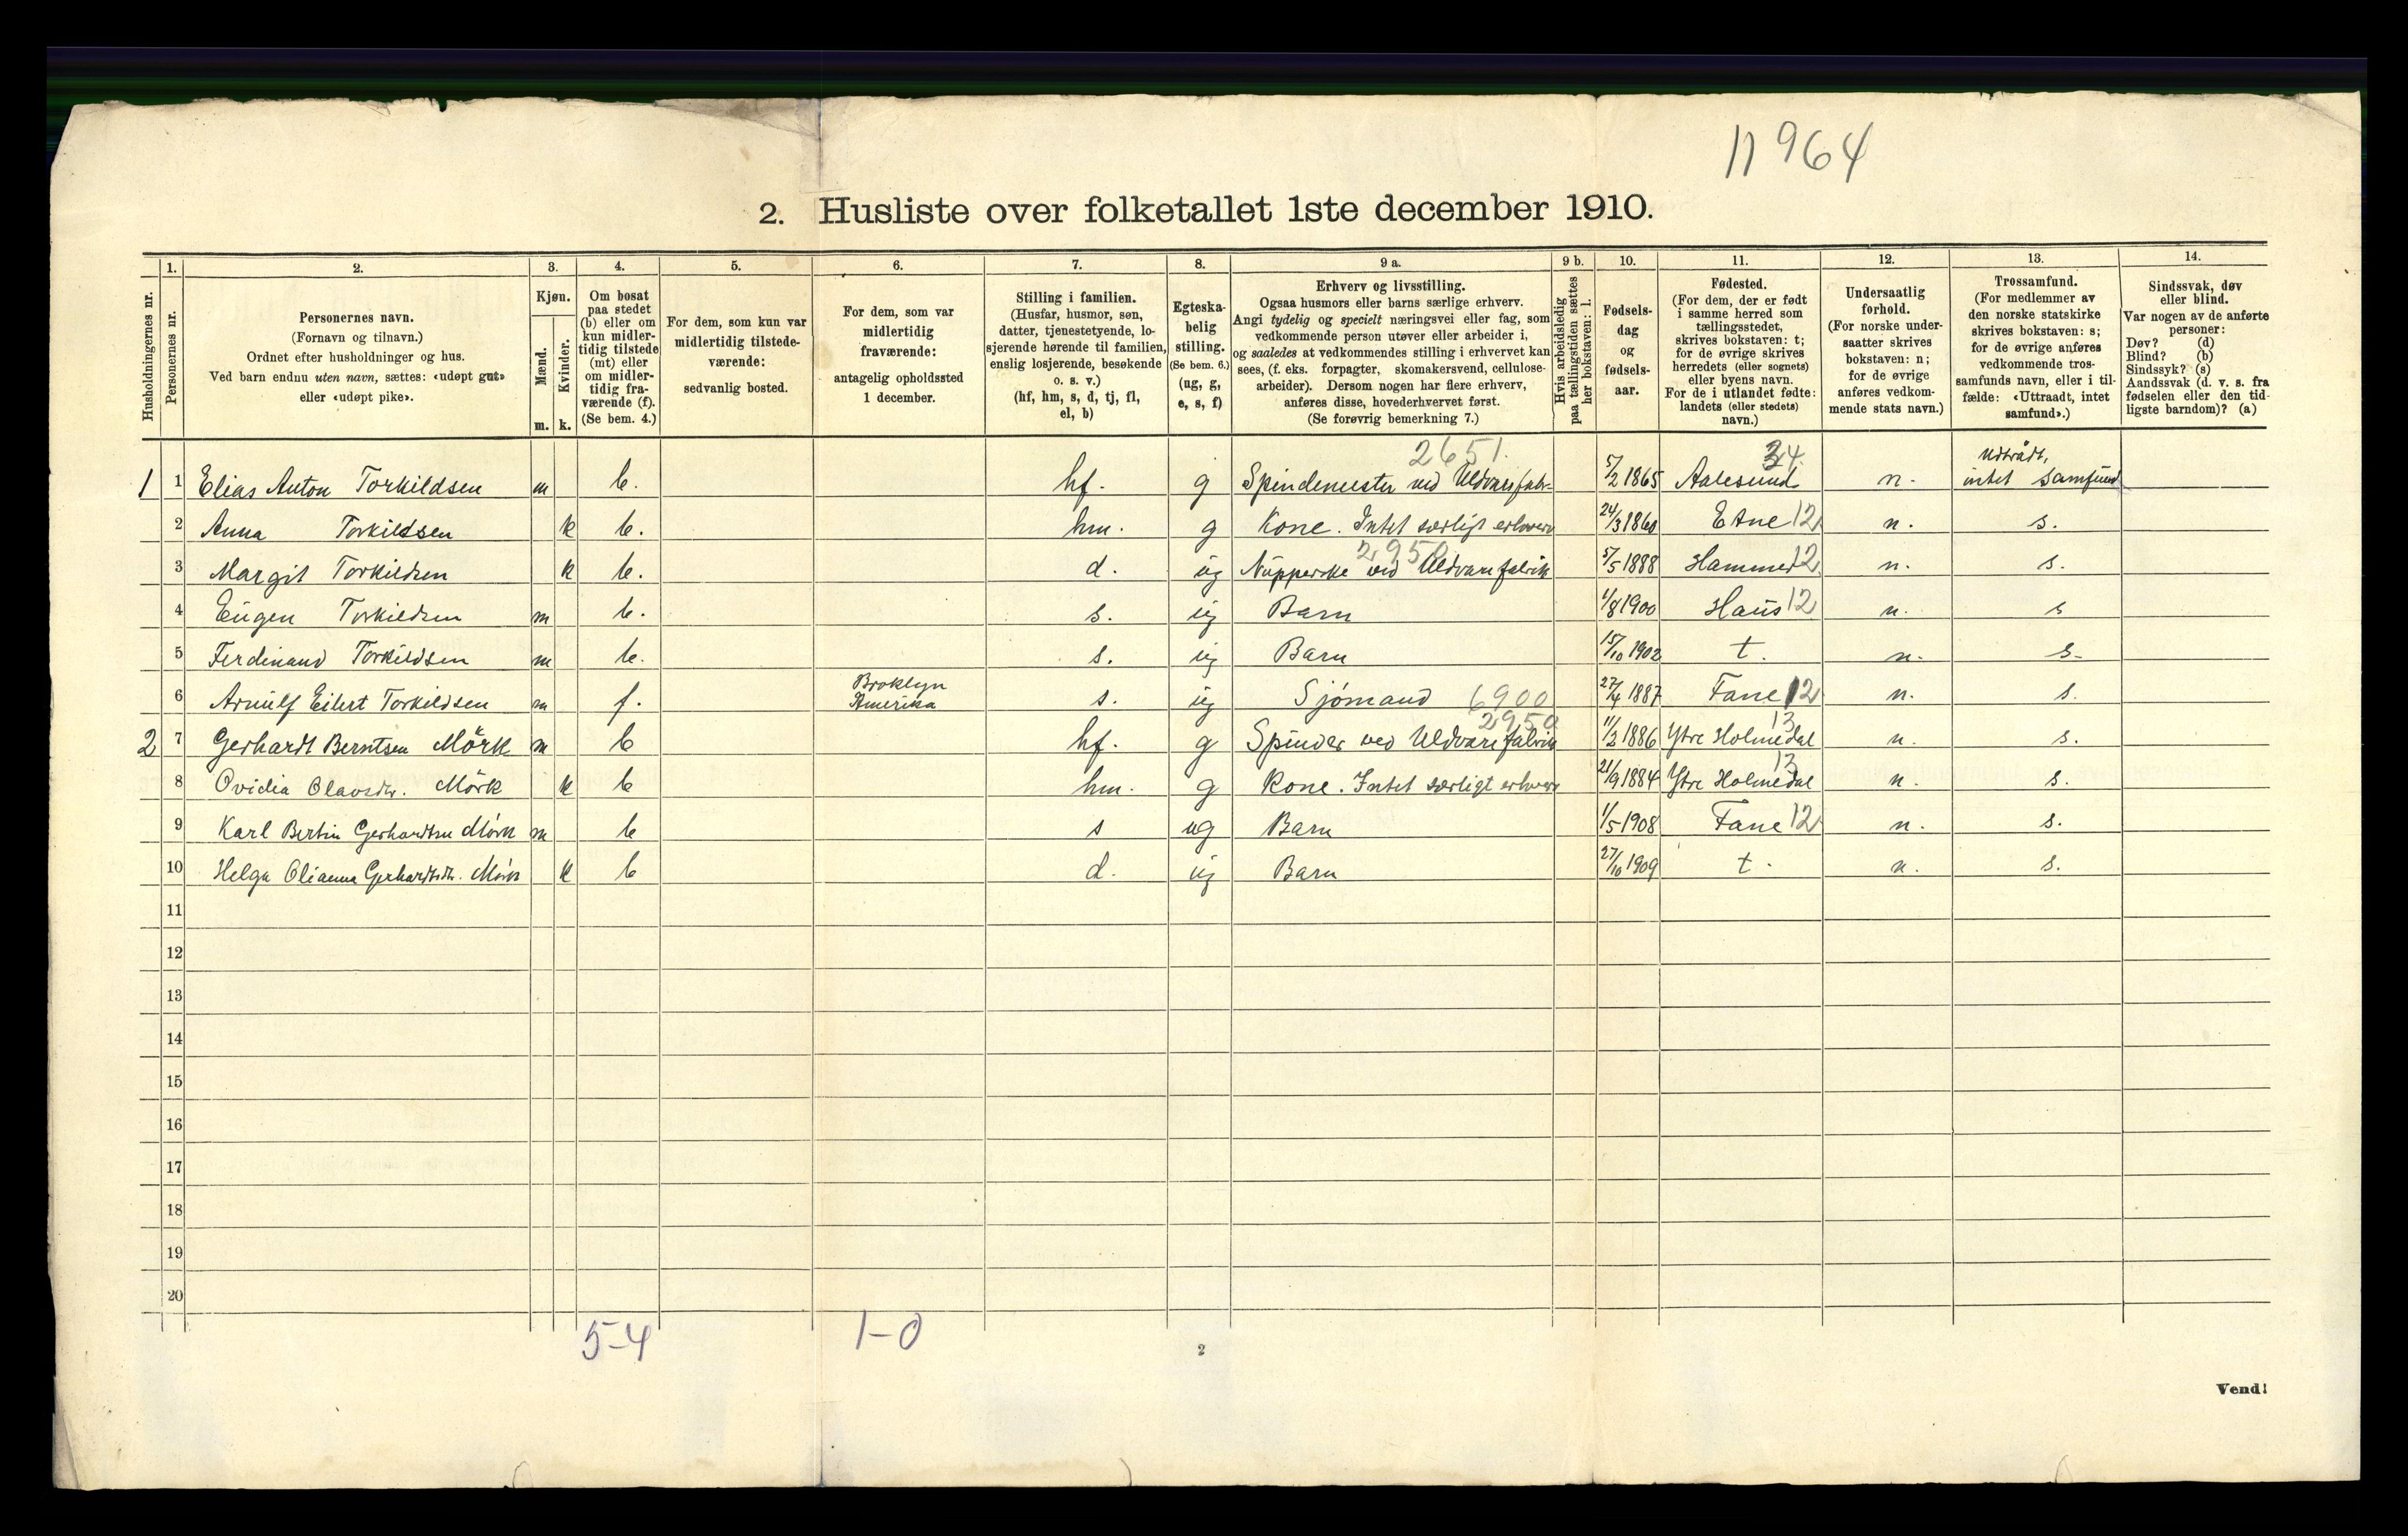 11964
2. Husliste over folketallet 1ste december 1910.
Husholdningernes nr.
1.
Personernes nr.
2.
Personernes navn.
(Fornavn og tilnavn.)
Ordnet efter husholdninger og hus.
Ved barn endnu uten navn, sættes: «udøpt gut»
eller «udøpt pike».
3.
Kjøn.
Mænd.
Kvinder.
m. k.
4.
Om bosat
paa stedet
(b) eller om
kun midler-
tidig tilstede
(mt) eller
om midler-
tidig fra-
værende (f).
(Se bem. 4.)
5.
For dem, som kun var
midlertidig tilstede-
værende:
sedvanlig bosted.
6.
For dem, som var
midlertidig
fraværende:
antagelig opholdssted
1 december.
7.
Stilling i familien.
(Husfar, husmor, søn,
datter, tjenestetyende, lo-
sjerende hørende til familien,
enslig losjerende, besøkende
o. s. v.)
(hf, hm, s, d, tj, fl,
el, b)
8.
Egteska-
belig
stilling.
(Se bem. 6.)
(ug, g,
e, s, f)
9 a.
Erhverv og livsstilling.
Ogsaa husmors eller barns særlige erhverv.
Angi tydelig og specielt næringsvei eller fag, som
vedkommende person utøver eller arbeider i,
og saaledes at vedkommendes stilling i erhvervet kan
sees, (f. eks. forpagter, skomakersvend, cellulose-
arbeider). Dersom nogen har flere erhverv,
anføres disse, hovederhvervet først.
(Se forøvrig bemerkning 7.)
9 b.
Hvis arbeidsledig
paa tællingstiden sættes
her bokstaven: l.
10.
Fødsels-
dag
og
fødsels-
aar.
11.
Fødested.
(For dem, der er født
i samme herred som
tællingsstedet,
skrives bokstaven: t;
for de øvrige skrives
herredets (eller sognets)
eller byens navn.
For de i utlandet fødte:
landets (eller stedets)
navn.)
12.
Undersaatlig
forhold.
(For norske under-
saatter skrives
bokstaven: n;
for de øvrige
anføres vedkom-
mende stats navn.)
13.
Trossamfund.
(For medlemmer av
den norske statskirke
skrives bokstaven: s;
for de øvrige anføres
vedkommende tros-
samfunds navn, eller i til-
fælde: «Uttraadt, intet
samfund».)
14.
Sindssvak, døv
eller blind.
Var nogen av de anførte
personer:
Døv? (d)
Blind? (b)
Sindssyk? (s)
Aandssvak (d. v. s. fra
fødselen eller den tid-
ligste barndom)? (a)
2651. 34. Udtrådt,
1 1 Elias Anton Torkildsen m b. hf. g Spindemester ved Uldvarefabr. 5/2 1865 Aalesund n. intet samfund
2 Anna Torkildsen k b. hm. g Kone. Intet særligt erhverv 24/3 Etne 12 n. s.
2950
3 Margit Torkildsen k b. d. ug Nupperske ved Uldvarefabrik 5/5 1888 Hammer 12 n. s.
4 Eugen Torkildsen m b. s. ug Barn 1/8 1900 Haus 12 n. s
5 Ferdinand Torkildsen m b. s. ug Barn 15/10 1902 t. n. s.
Broklyn
6 Arnulf Eilert Torkildsen m f. Amerika s. ug Sjømand 6900 27/4 1887 Fane 12 n. s.
2950 13
2 7 Gerhardt Berntsen Mörk m b hf. g Spinder ved Uldvarefabrik 11/2 1886 Ytre Holmedal n. s.
13
8 Ovidia Olavsdr. Mörk k b hm. g Kone. Intet særligt erhverv 21/9 1884 Ytre Holmedal n. s.
9 Karl Bertin Gerhardtsen Mörk m b s ug Barn 1/5 1908 Fane 12 n. s.
10 Helga Olianna Gerhardtsdr. Mörk k b d. ug Barn 27/10 1909 t. n. s.
11
12
13
14
15
16
17
18
19
20
5-4 1-0
2
Vend!